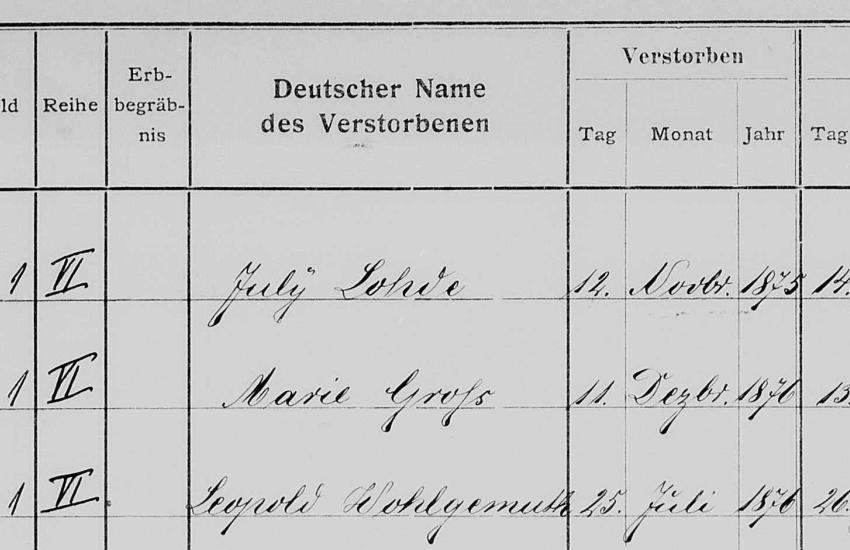 Verstorben
Erb-
ld Reihe begräb- Deutscher Name
nis des Verstorbenen Tag Monat Jahr Tag
1 VI July Lohde 12. Novbr. 1875 14.
1 VI Marie Groß 11. Dezbr. 1876 13.
1 VI Leopold Wohlgemuth 25. Juli 1876 26.